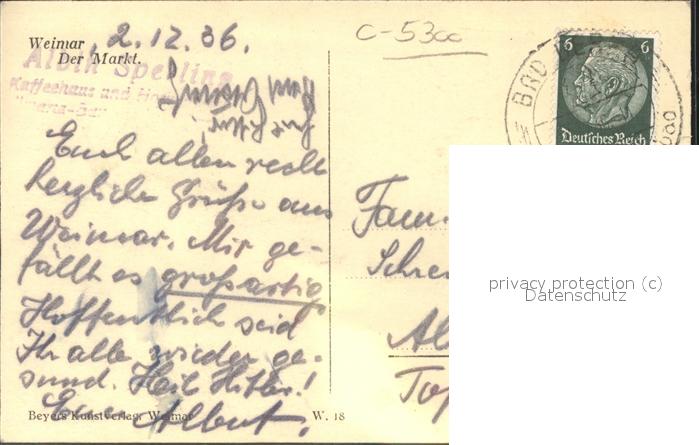 Weimar, 2.12.36.
Der Markt.
Albin Sperling
Kaffeehaus und
C-5300
6 6
Deutsches Reich
Euch allen recht
herzliche Grüße aus
Weimar. Mir ge-
fällt es großartig
Hoffentlich seid
Ihr alle wieder ge-
sund. Heil Hitler!
Euer Albert.
Fam.
Schre
Al
Top
privacy protection (c)
Datenschutz
Beyers Kunstverlag, Weimar W. 18